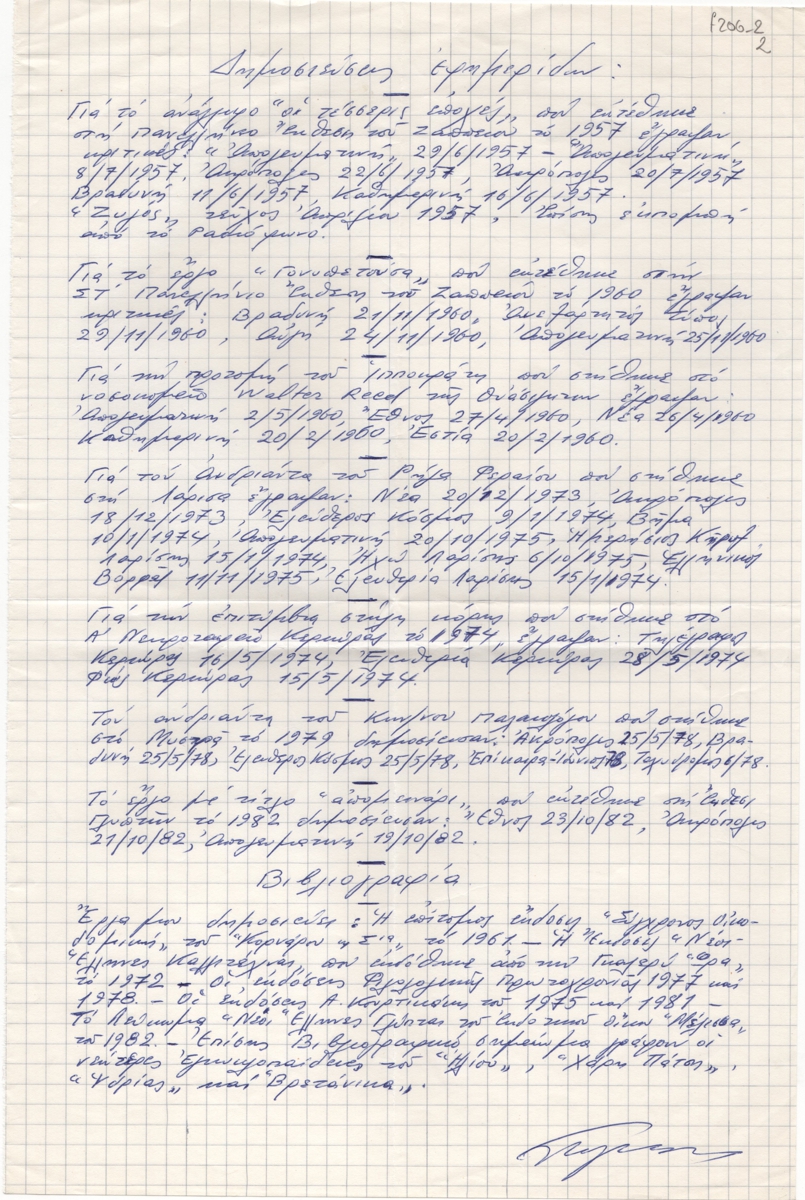 F206-2
2
Δημοσιεύσεις ἐφημερίδων:
Γιά τό ἀνάγλυφο "οἱ τέσσερις ἐποχές„ πού ἐκτέθηκε
στήν Πανελλήνιο Ἔκθεση τοῦ Ζαππείου τό 1957 ἔγραψαν
κριτικές: "Ἀπογευματινή„ 29/6/1957 – "Ἀπογευματινή„
8/7/1957. Ἀκρόπολις 22/6/1957, Ἀκρόπολις 20/7/1957
Βραδυνή 11/6/1957, Καθημερινή 16/6/1957.
"Ζυγός„ τεῦχος Ἀπριλίου 1957, Ἐπίσης ἐκπομπή
ἀπό τό Ραδιόφωνο.
Γιά τό ἔργο "Γονυπετοῦσα„ πού ἐκτέθηκε στήν
ΣΤ' Πανελλήνιο Ἔκθεση τοῦ Ζαππείου τό 1960 ἔγραψαν
κριτικές: Βραδυνή 21/11/1960, Ἀνεξάρτητος τύπος
29/11/1960, Αὐγή 24/11/1960, Ἀπογευματινή 25/11/1960
Γιά τήν προτομή τοῦ Ἱπποκράτη πού στήθηκε στό
νοσοκομεῖο Walter Reed τῆς Οὐάσιγκτων ἔγραψαν:
Ἀπογευματινή 2/5/1960, Ἔθνος 27/4/1960, Νέα 26/4/1960
Καθημερινή 20/2/1960, Ἑστία 20/2/1960.
Γιά τόν Ἀνδριάντα τοῦ Ρήγα Φεραίου πού στήθηκε
στή Λάρισα ἔγραψαν: Νέα 20/12/1973, Ἀκρόπολις
18/12/1973, Ἐλεύθερος Κόσμος 9/1/1974, Βῆμα
10/1/1974, Ἀπογευματινή 20/10/1975, Ἡμερήσιος Κήρυξ
Λαρίσης 15/1/1974, Ἠχώ Λαρίσης 6/10/1975, Ἑλληνικός
Βορρᾶς 11/11/1975, Ἐλευθερία Λαρίσης 15/1/1974.
Γιά τήν ἐπιτύμβια στήλη κόρης πού στήθηκε στό
Α' Νεκροταφεῖο Κερκύρας τό 1974, ἔγραψαν: Τηλέγραφος
Κερκύρας 16/5/1974, Ἐλευθερία Κερκύρας 28/5/1974
Φῶς Κερκύρας 15/5/1974.
Τόν ἀνδριάντα τοῦ Κων/νου Παλαιολόγου πού στήθηκε
στό Μυστρᾶ τό 1979 δημοσίευσαν: Ἀκρόπολις 25/5/78, Βρα-
δυνή 25/5/78, Ἐλεύθερος Κόσμος 25/5/78, Ἐπίκαιρα-Ἰούνιος 78, Ταχυδρόμος 6/78.
Τό ἔργο μέ τίτλο "ἀπομεινάρι„ πού ἐκτέθηκε στή Ἔκθεση
Γλυπτῶν τό 1982 δημοσίευσαν: Ἔθνος 23/10/82, Ἀκρόπολις
21/10/82, Ἀπογευματινή 19/10/82.
Βιβλιογραφία
Ἔργα μου δημοσιεύει: Ἡ ἐπίτομος ἔκδοσις "Σύγχρονος Οἰκο-
δομική„ τοῦ "Κορνάρου & Σία„ τό 1961. – Ἡ Ἔκδοσις "Νέοι-
Ἕλληνες Καλλιτέχναι„ πού ἐκδόθηκε ἀπό τήν Γκαλερύ "Ὥρα„
τό 1972 – Οἱ ἐκδόσεις Φιλολογικῆς Πρωτοχρονιᾶς 1977 καί
1978. – Οἱ ἐκδόσεις Α. Κουρτικάκη τοῦ 1975 καί 1981 –
Τό Λεύκωμα "Νέοι Ἕλληνες Γλύπται τοῦ Ἐκδοτικοῦ Οἴκου "Μέλισσα„
τοῦ 1982. – Ἐπίσης Βιβλιογραφικό σημείωμα γράφουν οἱ
νεώτερες Ἐγκυκλοπαίδειες τοῦ "Ἡλίου„, "Χάρη Πάτση„,
"Ὑδρίας„ καί "Βρετάνικα„.